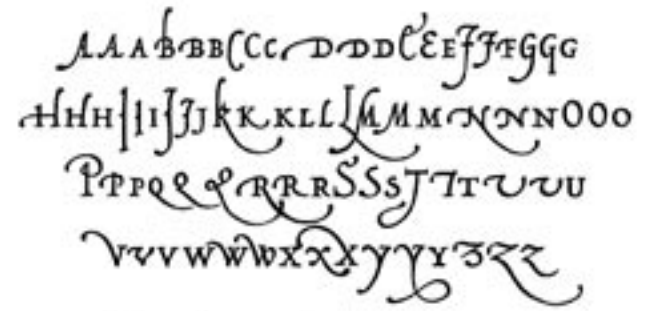 AAABBBCCCDDDEEEFFFGGG
HHHIIIJJJKKKLLLMMMNNNOOO
PPPQQQRRRSSSTTTUUU
VVVWWWXXXYYYZZZ